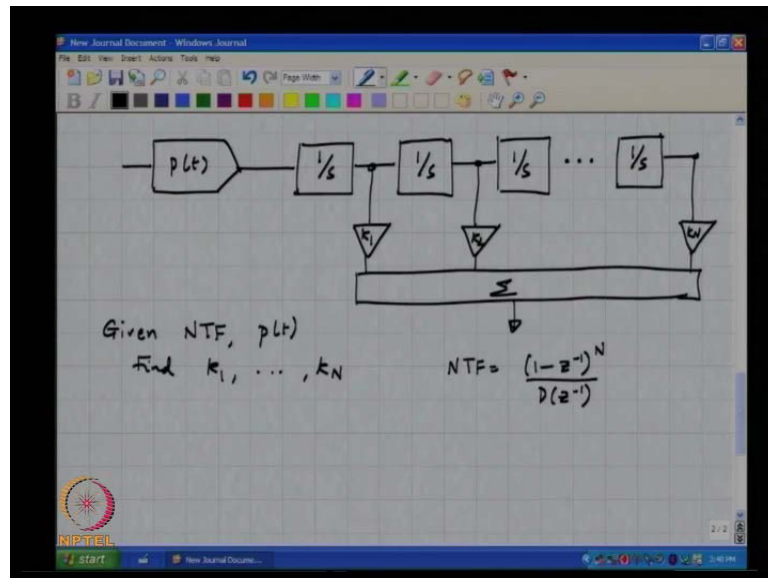 New Journal Document - Windows Journal
File Edit View Insert Actions Tools Help
Page Width
B I
P(t) 1/s 1/s 1/s ... 1/s
k1 k2 kN
Σ
Given NTF, p(t)
Find k1, ..., kN
NTF = (1-z^-1)^N / D(z^-1)
2/2
NPTEL
start New Journal Docume... 3:40 PM